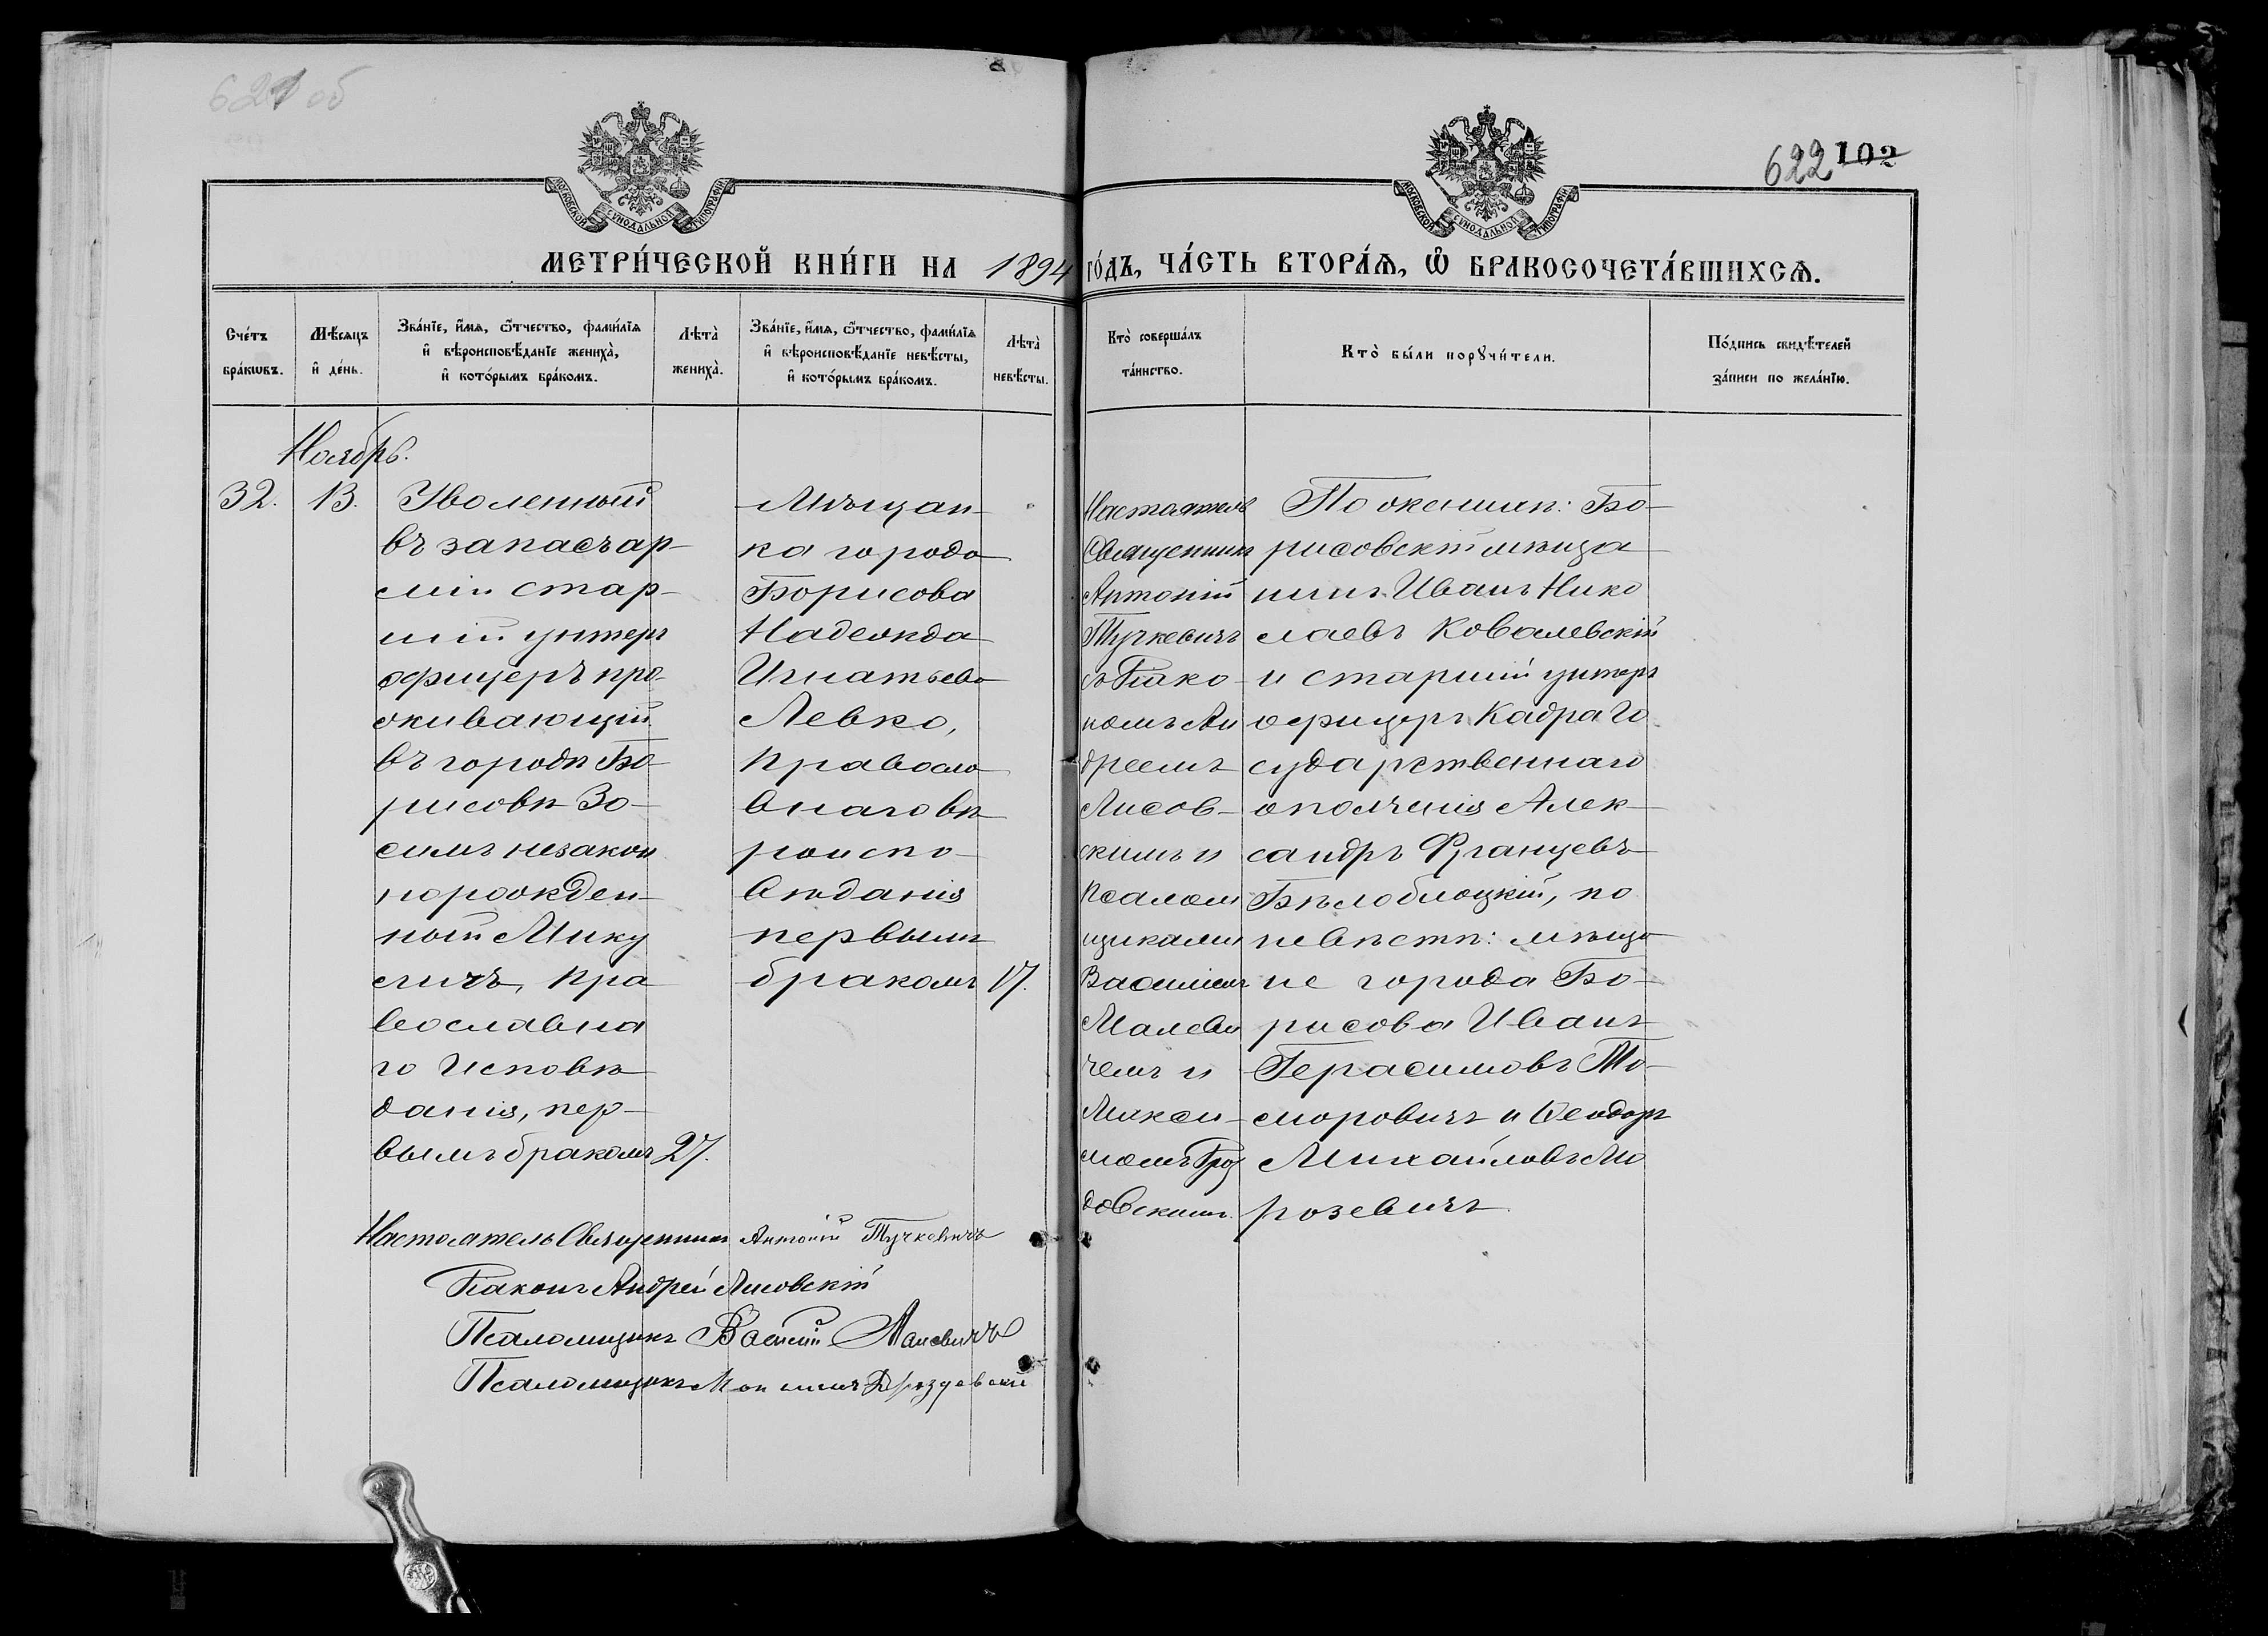 621 об
622 102
МОСКОВСКОЙ СѴНОДАЛЬНОЙ ТИПОГРАФІИ
МОСКОВСКОЙ СѴНОДАЛЬНОЙ ТИПОГРАФІИ
МЕТРИ́ЧЕСКОЙ КНИ́ГИ НА 1894 ГО́ДЪ, ЧА́СТЬ ВТОРА́Ѧ, Ѽ БРАКОСОЧЕТА́ВШИХСѦ.
Сче́тъ
бра́кѡвъ.
Мѣ́сѧцъ
и҆ де́нь.
Зва́нїе, и҆́мѧ, ѻ҆́тчество, фами́лїѧ
и҆ вѣроисповѣ́данїе жениха̀,
и҆ кото́рымъ бра́комъ.
Лѣта̀
жениха̀.
Зва́нїе, и҆́мѧ, ѻ҆́тчество, фами́лїѧ
и҆ вѣроисповѣ́данїе невѣ́сты,
и҆ кото́рымъ бра́комъ.
Лѣта̀
невѣ́сты.
Кто̀ соверша́лъ
та́инство.
Кто̀ бы́ли порꙋчи́тели.
По́дпись свидѣ́телей
за́писи по жела́нїю.
Ноябрь.
32.
13.
Уволенный
въ запасъ ар-
міи стар-
шій унтеръ
офицеръ про-
живающій
въ городѣ Бо-
рисовѣ Зо-
симъ незакон
норожден-
ный Мику
личъ, пра
вославна
го исповѣ
данія, пер-
вымъ бракомъ
27.
Мѣщан-
ка города
Борисова
Надежда
Игнатьева
Левко,
православ
наго вѣ
роиспо-
вѣданія
первымъ
бракомъ
17.
Настоятель
Священникъ
Антоній
Тучкевичъ
съ Діако-
номъ Ан
дреемъ
Лисов-
скимъ и
Псалом
щиками
Василіемъ
Малеви
чемъ и
Макси-
момъ Дроз
довскимъ.
По женихѣ: Бо-
рисовскій мѣща
нинъ Иванъ Нико
лаевъ Ковалевскій
и старшій унтеръ
офицеръ Кадра Го
сударственнаго
ополченія Алек-
сандръ Францевъ
Бѣлоблоцкій, по
невѣстѣ: мѣща
не города Бо-
рисова Иванъ
Герасимовъ То-
моровичъ и Ѳеодоръ
Михайловъ Мо
розевичъ
Настоятель Священникъ Антоній Тучкевичъ
Діаконъ Андрей Лисовскій
Псаломщикъ Василій Малевичъ
Псаломщикъ Максимъ Дроздовскій